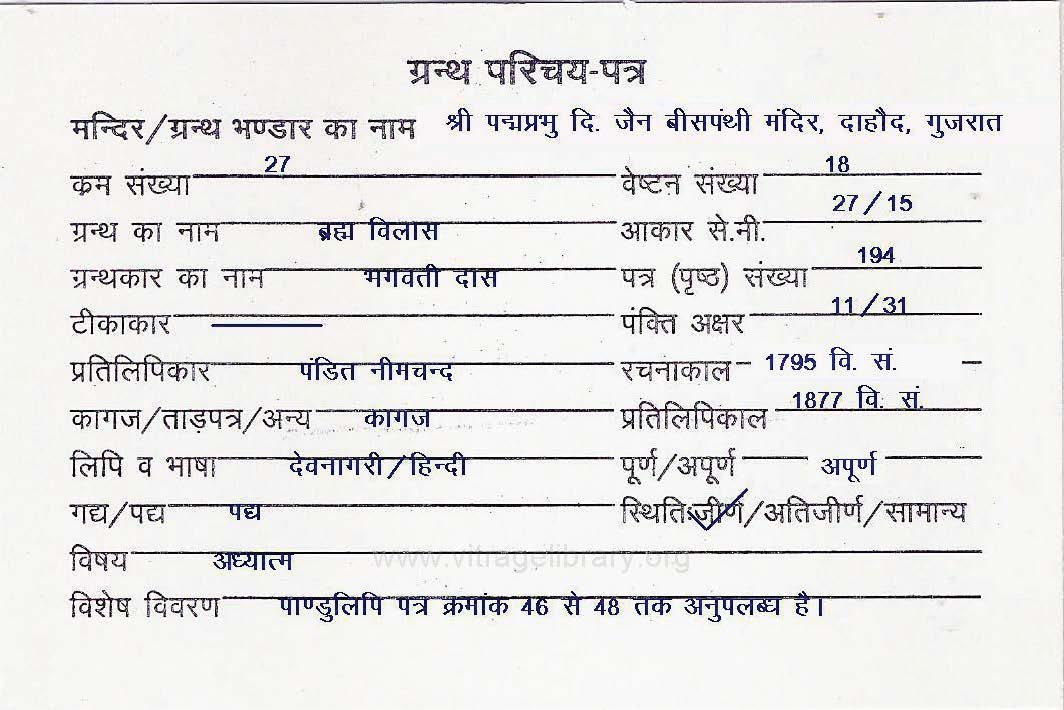 ग्रन्थ परिचय-पत्र
मन्दिर/ग्रन्थ भण्डार का नाम श्री पद्मप्रभु दि. जैन बीसपंथी मंदिर, दाहौद, गुजरात
क्रम संख्या 27 वेष्टन संख्या 18
ग्रन्थ का नाम ब्रह्म विलास आकार से.मी. 27/15
ग्रन्थकार का नाम भगवती दास पत्र (पृष्ठ) संख्या 194
टीकाकार — पंक्ति अक्षर 11/31
प्रतिलिपिकार पंडित नीमचन्द रचनाकाल – 1795 वि. सं. –
कागज/ताड़पत्र/अन्य कागज प्रतिलिपिकाल 1877 वि. सं.
लिपि व भाषा देवनागरी/हिन्दी पूर्ण/अपूर्ण — अपूर्ण
गद्य/पद्य पद्य स्थिति:जीर्ण/अतिजीर्ण/सामान्य
विषय अध्यात्म
www.vitragelibrary.org
विशेष विवरण पाण्डुलिपि पत्र क्रमांक 46 से 48 तक अनुपलब्ध है।